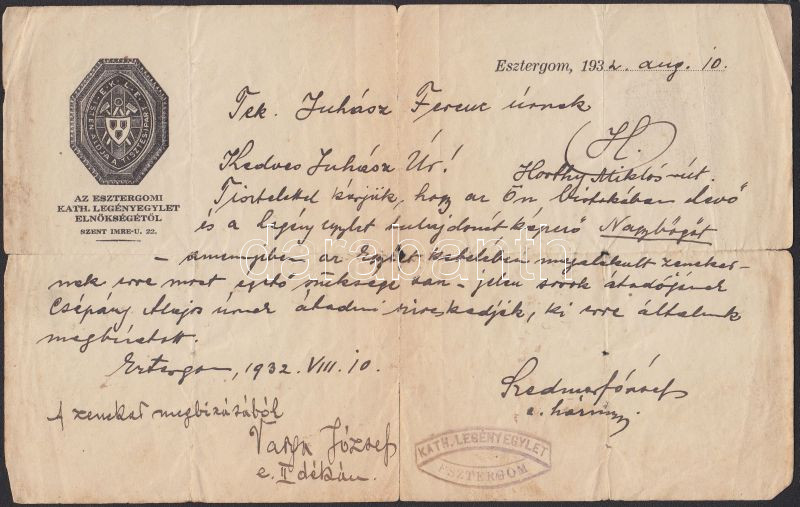 Esztergom, 1932. aug. 10.
Tek. Juhász Ferenc úrnak
(H.)
Horthy Miklós-út.
Kedves Juhász Úr!
AZ ESZTERGOMI
KATH. LEGÉNYEGYLET
ELNÖKSÉGÉTŐL
SZENT IMRE-U. 22.
E.K.L.E.
ISTEN ÁLDJA A TISZTES IPART
Tisztelettel kérjük, hogy az Ön birtokában levő
és a legényegylet tulajdonát képező Nagybőgőt
– amennyiben az Egylet kebelében megalakult zenekar-
nak erre most égető szüksége van – jelen sorok átadójának
Csépány Alajos úrnak átadni szíveskedjék, ki erre általunk
megbízatott.
Esztergom, 1932. VIII. 10.
A zenekar megbízásából
Varga József
e. II dékán.
KATH. LEGÉNYEGYLET
ESZTERGOM
darabanth